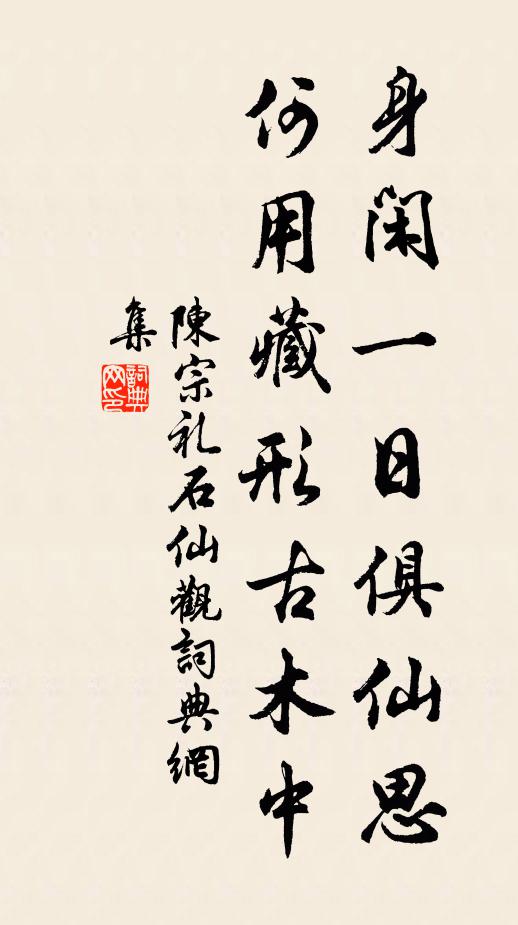 身閑一日俱仙思
何用藏形古木中
陳宗礼石仙觀詞典網
集
詞典網印